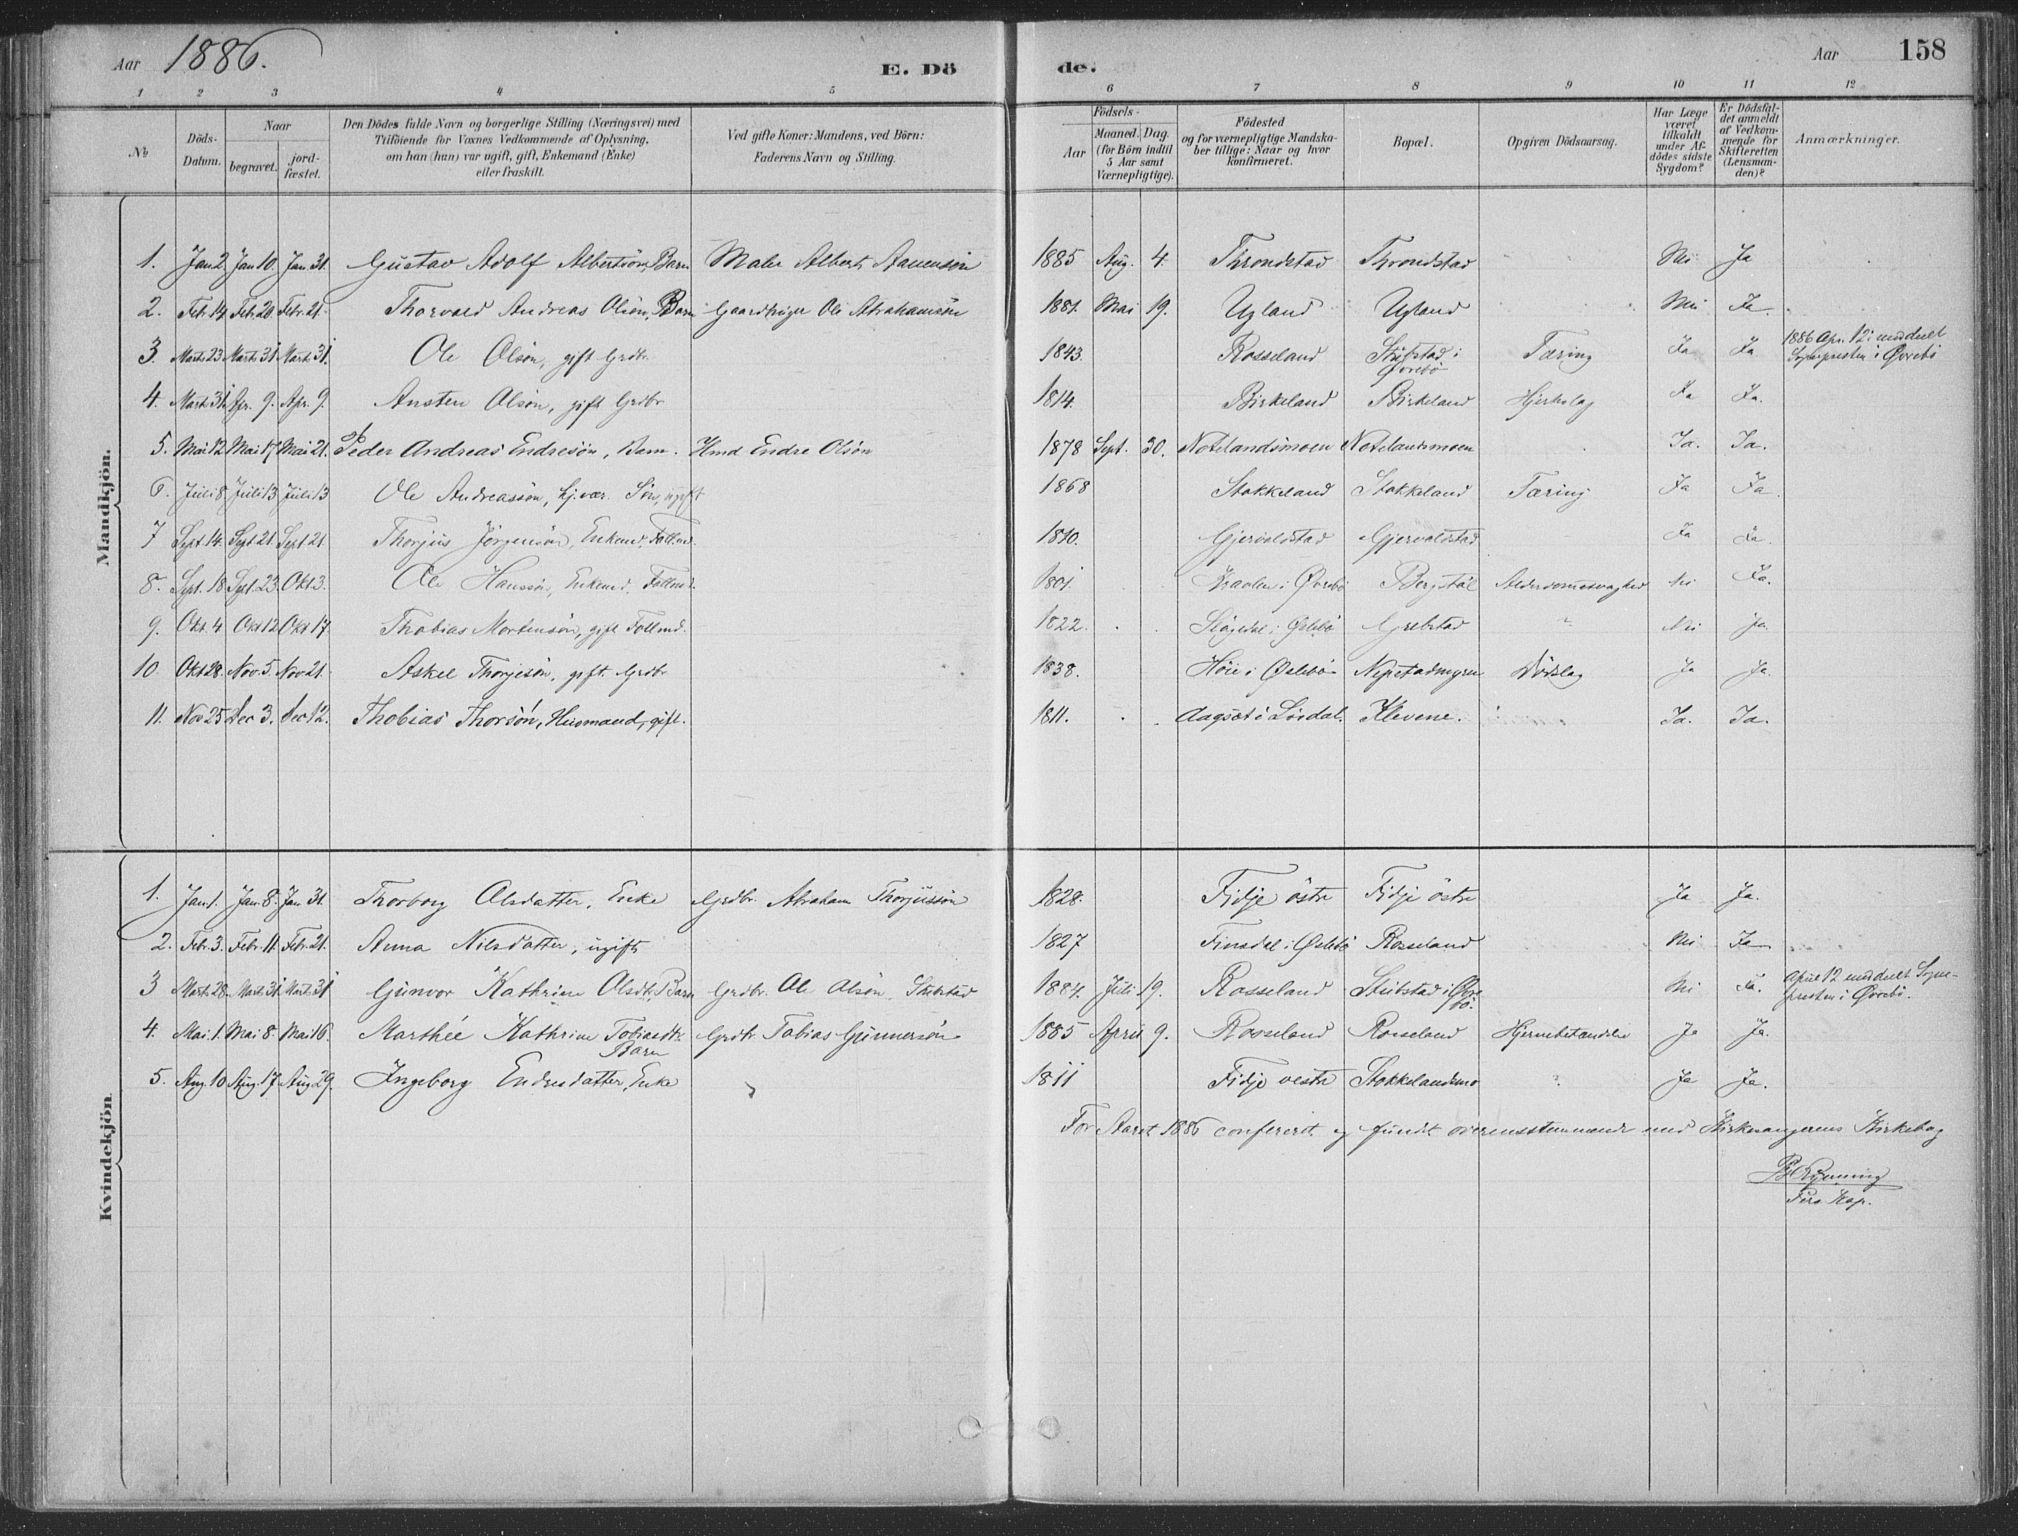 Aar 1886. E. Dö de. Aar 158
1 2 3 4 5 6 7 8 9 10 11 12
№
Döds-Datum.
Naar
begravet.
jordfæstet.
Den Dödes fulde Navn og borgerlige Stilling (Næringsvei) med
Tilföiende for Voxnes Vedkommende af Oplysning,
om han (hun) var ugift, gift, Enkemand (Enke)
eller fraskilt.
Ved gifte Koner: Mandens, ved Börn:
Faderens Navn og Stilling.
Födsels-
Aar
Maaned. Dag.
(for Börn indtil
5 Aar samt
Værnepligtige).
Födested
og for værnepligtige Mandska-
ber tillige: Naar og hvor
konfirmeret.
Bopæl.
Opgiven Dödsaarsag.
Har Læge
været
tilkaldt
under Af-
dödes sidste
Sygdom?
Er Dödsfal-
det anmeldt
af Vedkom-
mende for
Skifteretten
(Lensman-
den)?
Anmærkninger.
Mandkjön.
1. Jan 2 Jan 10. Jan. 31. Gustav Adolf Albertsön Barn Maler Albert Aanensön 1885 Aug. 4. Throndstad Throndstad Nei Ja
2. Feb. 14 Feb. 20 Febr. 21. Thorvald Andreas Olsön, Barn Gaardbruger Ole Abrahamsön 1881. Mai 19. Ugland Ugland Nei Ja.
3. Marts 23 Marts 31 Mart. 31. Ole Olsön, gift Grdbr. 1843. Rosseland Stubstad i Øvrebö Tæring Ja Ja 1886 Apr. 12 meddelt Sognepresten i Øvrebö
4. Marts 31. Apr. 9. Apr. 9. Ansten Olsön, gift Grdbr 1814. Birkeland Birkeland Hjerteslag Ja Ja.
5. Mai 12 Mai 17 Mai 21. Peder Andreas Endresön, Barn. Hmd Endre Olsön 1878 Sept. 30. Notelandsmoen Notelandsmoen Ja. Ja.
6. Juli 8 Juli 13 Juli 13 Ole Andreassön, hj.vær. Sön, ugift 1868 Stokkeland Stokkeland Tæring Ja Ja.
7 Sept. 14. Sept 21. Sept 21 Thorjus Jörgensön, Enkemd, Follmd. 1810. Gjervoldstad Gjervoldstad Ja Ja.
8. Sept. 18 Sept. 23. Okt 3. Ole Hanssön, Enkemd, Follmd. 1801. i Øvrebö Bergstöl Alderdomssvaghed Nei Ja.
9. Okt. 4 Okt 12 Okt 17. Thobias Mortensön, gift Follmd. 1822. i Øslebö Grebstad " Nei ja.
10. Okt 28. Nov. 5 Nov 21. Askel Thorjesön, gift Grdbr 1838. Höie i Øslebö Nepstadmyren Ja Ja.
11. Nov 25 Dec 3. Dec 12. Thobias Thorsön, Husmand, gift. 1811. Aagset i Lördal. Klevene. Ja. Ja.
Kvindekjön.
1. Jan 1. Jan. 8. Jan 31. Thorborg Olsdatter, Enke Grdbr. Abraham Thorjussön 1828. Fidje östre Fidje östre Ja Ja.
2. Febr. 3. Febr. 11. Febr. 21. Anna Nilsdatter, ugift 1827 Finsdal i Øslebö Rosseland Nei Ja
3 Marts 28. Marts 31. Marts 31 Gunvor Kathrine Olsdt. Barn Grdbr. Ole Olsön, Stubstad 1884. Juli 19. Rosseland Stubstad i Øvrebö. Nei Ja. April 12 meddelt Sognepresten i Øvrebö.
4. Mai. 1. Mai 8. Mai 16. Marthée Kathrine Tobiasdt. Barn Grdbr. Tobias Gunnersön 1885 April 9. Rosseland Rosseland Hjernebetændelse Ja Ja.
5. Aug. 10 Aug. 17. Aug 29. Ingeborg Endresdatter, Enke 1811 Fidje vestre Stokkelandsmo Ja Ja.
For Aaret 1886 confereret og fundet overensstemmende med Kirkesangerens Kirkebog
Pers. Kap.